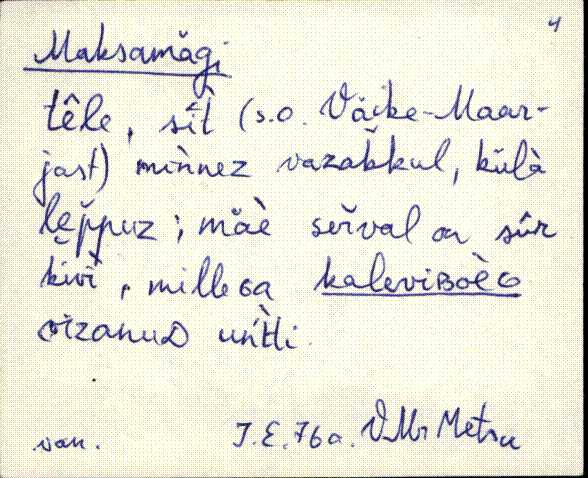 4
Maksamägi
têle, sì̀t (s.o. Väike-Maar-
jast) mìnnez vazak̆kul, külà
lep̆puz; mäè serval on sûr
kivì, milleGa kaleviBoèG
vizanuD untti.
van. J.E. 76a. VMr Metsu